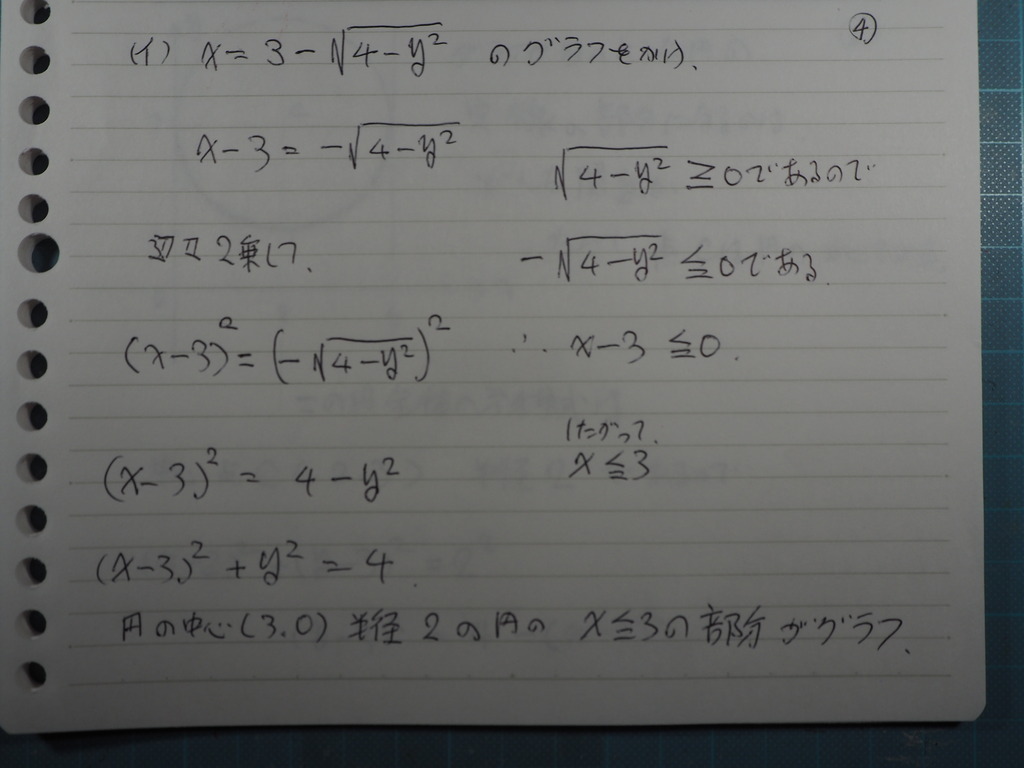 ④
(イ) x = 3 - √4-y² のグラフをかけ.
x-3 = -√4-y²
√4-y² ≧0であるので
辺々2乗して.
-√4-y² ≦0である.
(x-3)² = (-√4-y²)²
∴ x-3 ≦0.
したがって.
(x-3)² = 4-y²
x≦3
(x-3)² + y² = 4
円の中心(3.0) 半径 2 の円の x≦3の部分がグラフ.